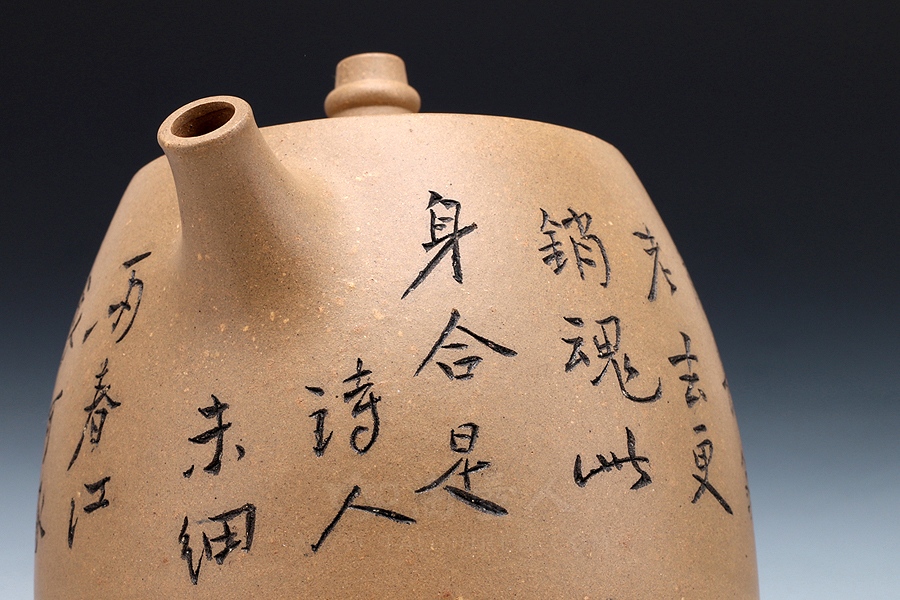 老去更
銷魂此
身合是
詩人
未細
雨春江